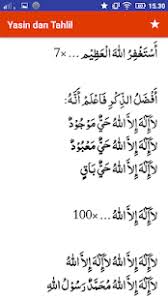 15.30
Yasin dan Tahlil
أَسْتَغْفِرُ اللهَ الْعَظِيْمَ ... ×7
أَفْضَلُ الذِّكْرِ فَاعْلَمْ أَنَّهُ:
لَاۤإِلٰهَ إِلاَّ اللهُ حَيٌّ مَوْجُوْدٌ
لَاۤإِلٰهَ إِلاَّ اللهُ حَيٌّ مَعْبُوْدٌ
لَاۤإِلٰهَ إِلاَّ اللهُ حَيٌّ بَاقٍ
لَاۤإِلٰهَ إِلاَّ اللهُ ... ×100
لَاۤإِلٰهَ إِلاَّ اللهُ لَاۤإِلٰهَ إِلاَّ اللهُ
لَاۤإِلٰهَ إِلاَّ اللهُ مُحَمَّدٌ رَسُوْلُ اللهِ